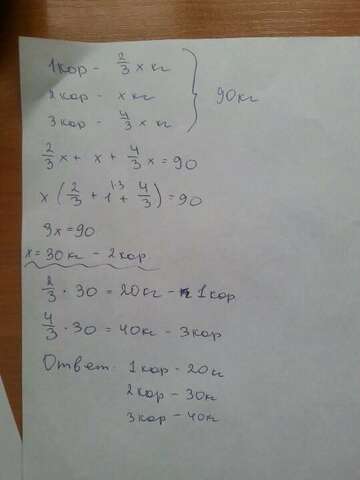 1кор - 2/3 x кг
2кор - x кг
3кор - 4/3 x кг
90кг
2/3 x + x + 4/3 x = 90
x ( 2/3 + 1 + 4/3 ) = 90
3x = 90
x = 30кг - 2кор
2/3 · 30 = 20кг - 1кор
4/3 · 30 = 40кг - 3кор
Ответ: 1кор - 20кг
2кор - 30кг
3кор - 40кг